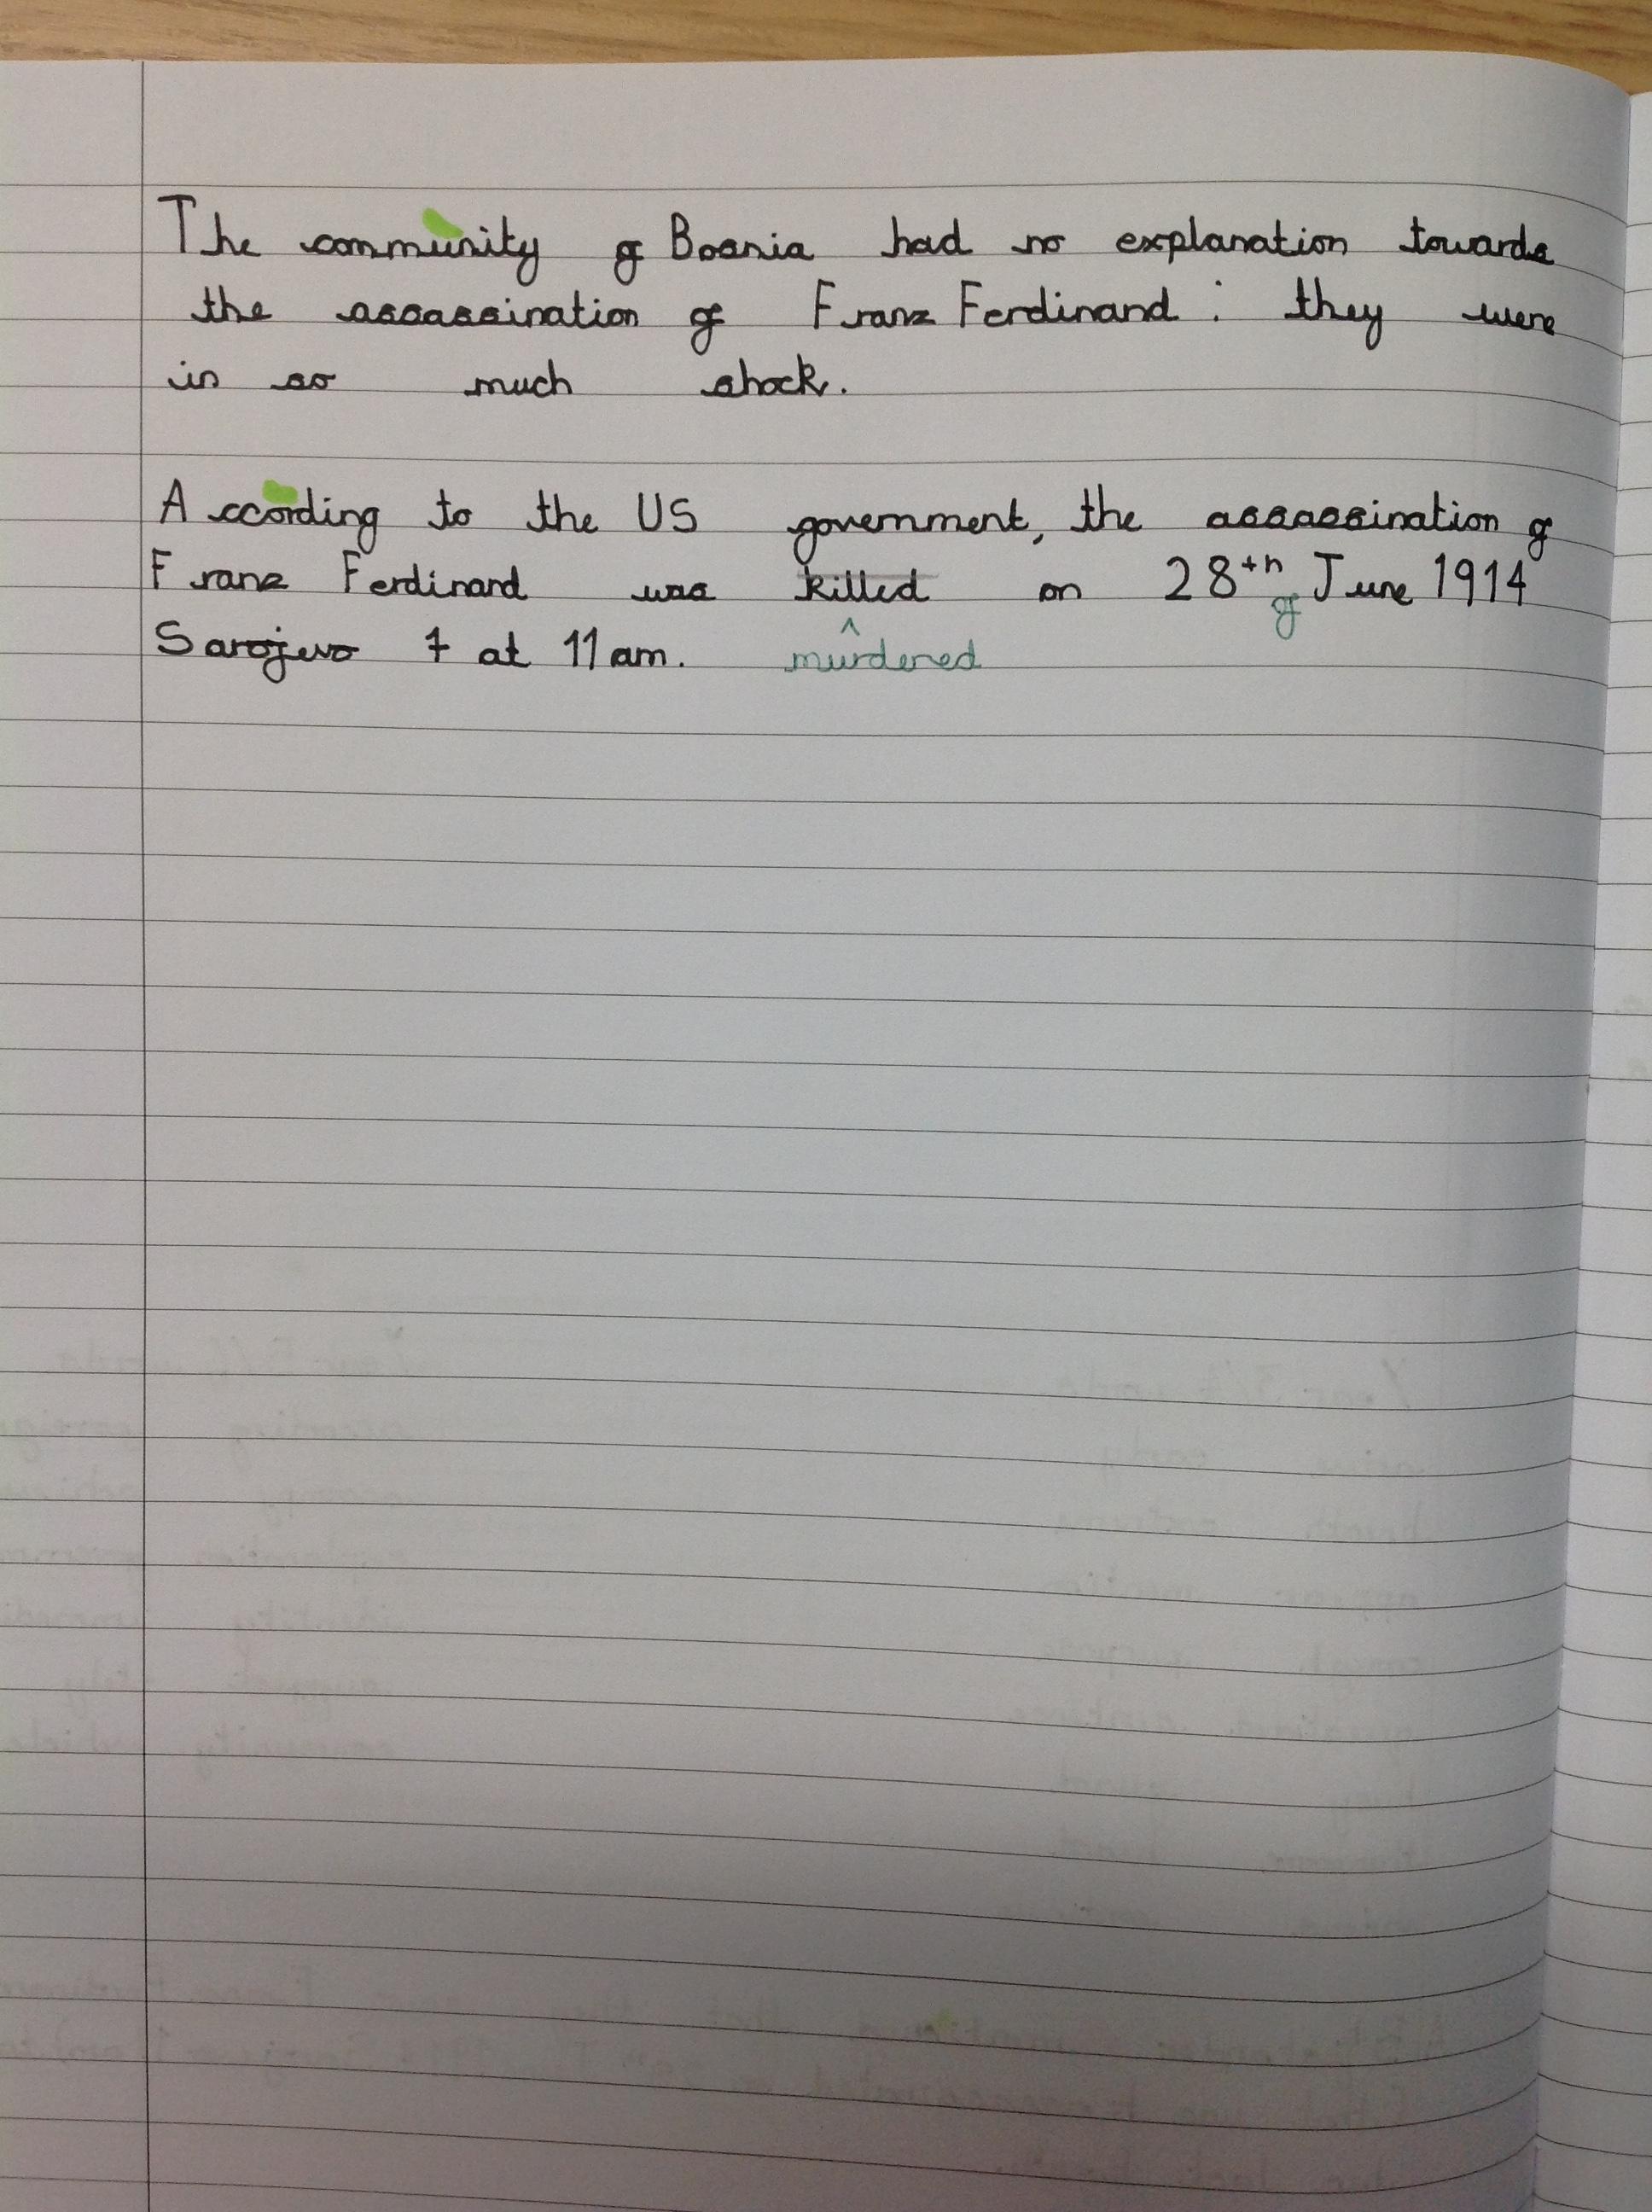 The community of Bosnia had no explanation towards
the assassination of Franz Ferdinand : they were
in so much shock.
Accoding to the US government, the assassination of
Franz Ferdinand was killed on 28th of June 1914
Sarojevo 7 at 11am. murdered